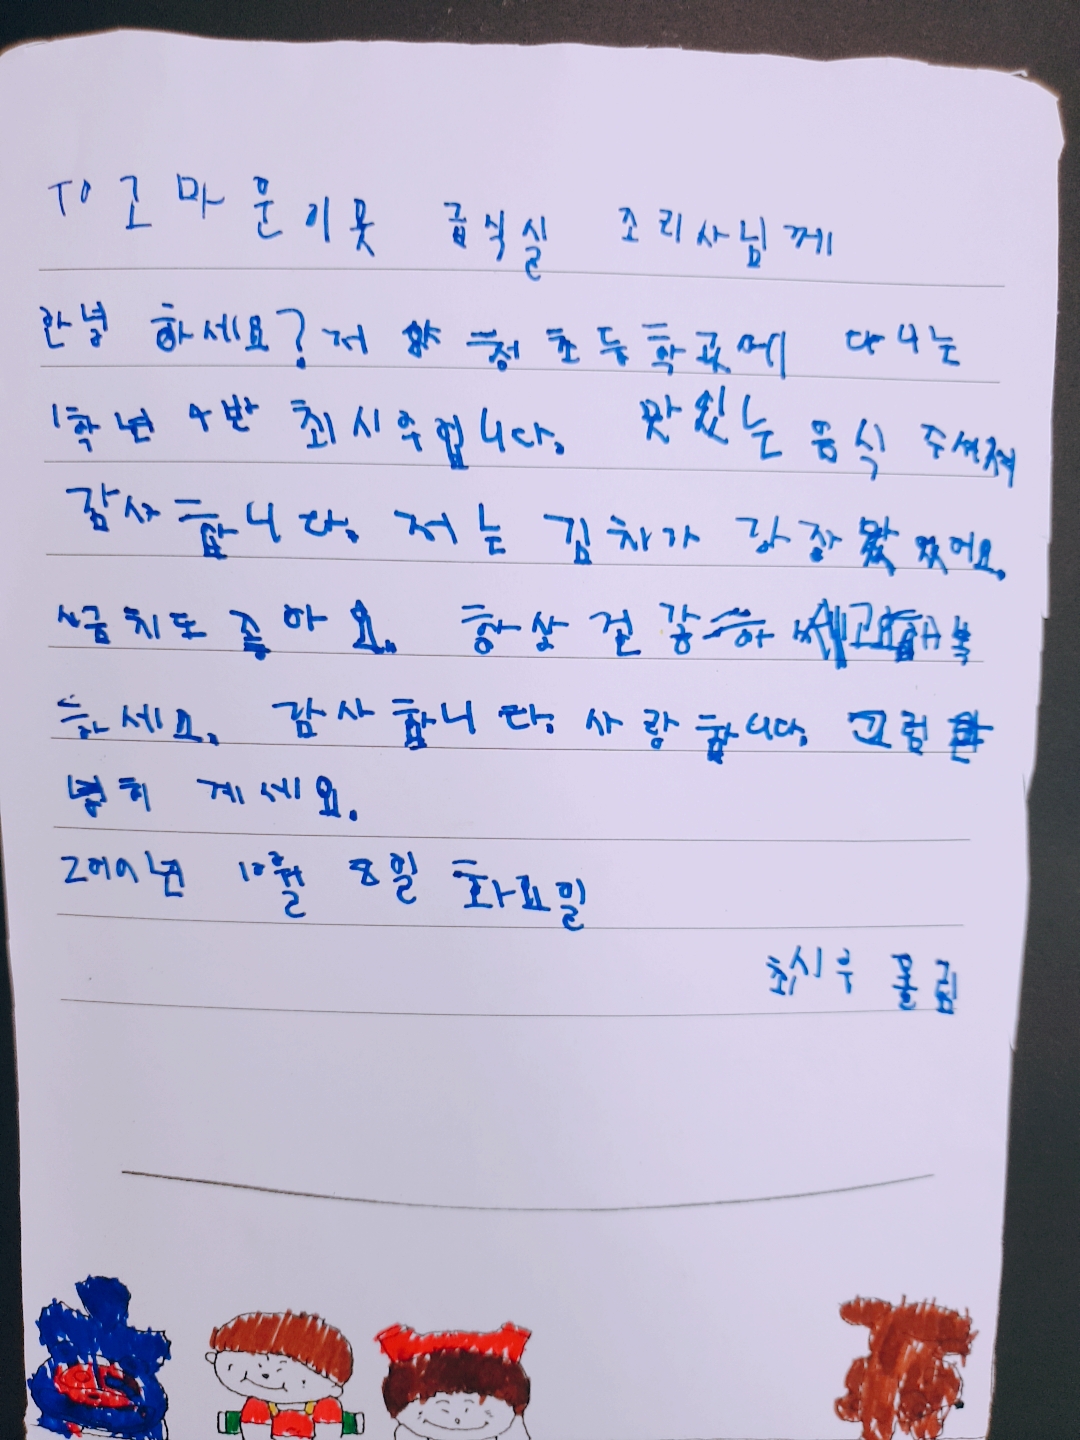 To 고마운이웃 급식실 조리사님께
안녕 하세요? 저 초등학교에 다니는
1학년 4반 최시우입니다. 맛있는 음식 주셔서
감사합니다. 저는 김치가 강장 맛있어요.
시금치도 좋아요. 항상 건강하시고 행복
하세요. 감사합니다. 사랑합니다. 그럼 안
녕히 계세요.
10월 8일 화요일
최시우 올림